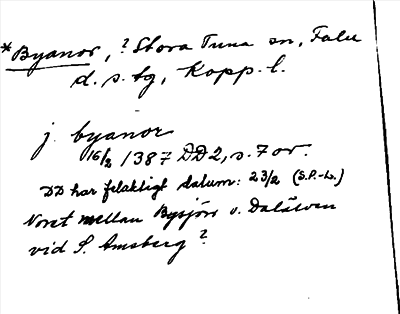 *Byanor, ? Stora Tuna sn, Falu
d. s. tg, Kopp. l.
j byanor
16/2 1387 DD 2, s. 7 or.
DD har felaktigt datum: 23/2 (S.P.-L.)
Noret mellan Bysjön o. Dalälven
vid S. Amsberg ?